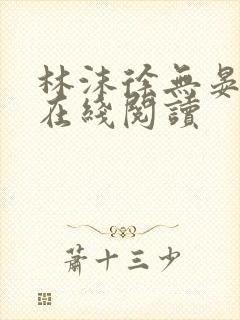 林沫徐無晏
在綫閱讀
蕭十三少